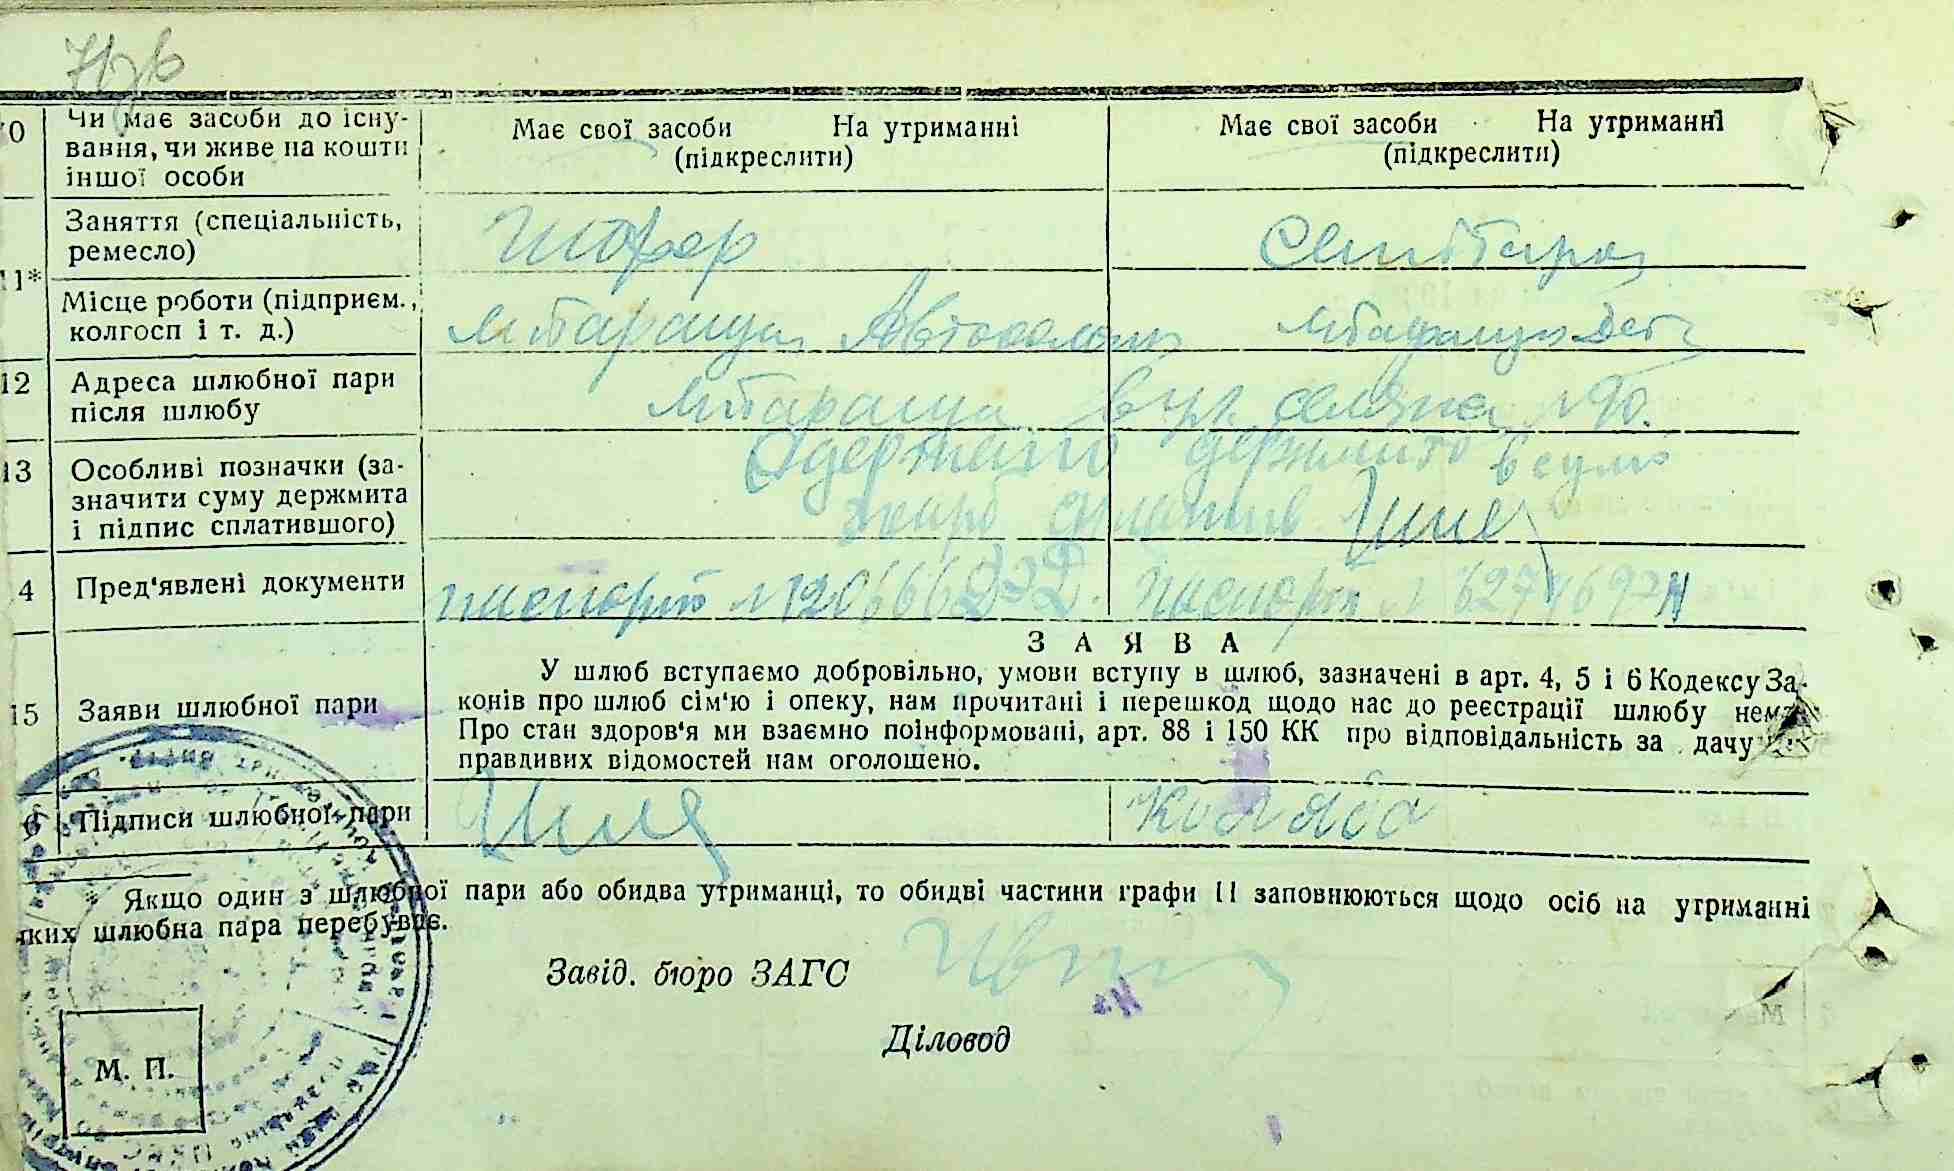 71зв
10 Чи має засоби до існу-
вання, чи живе на кошти
іншої особи
Має свої засоби На утриманні
(підкреслити)
Має свої засоби На утриманні
(підкреслити)
11* Заняття (спеціальність,
ремесло)
Шофер
Санітарка
Місце роботи (підприєм.,
колгосп і т. д.)
м Тараща Автоколона
м Тараща Дет
12 Адреса шлюбної пари
після шлюбу
м Тараща вул. селянс 90.
13 Особливі позначки (за-
значити суму держмита
і підпис сплатившого)
Одержано держмито в сумі
14 Пред'явлені документи
паспорт № 120666
Паспорт №
15 Заяви шлюбної пари
ЗАЯВА
У шлюб вступаємо добровільно, умови вступу в шлюб, зазначені в арт. 4, 5 і 6 Кодексу За-
конів про шлюб сім'ю і опеку, нам прочитані і перешкод щодо нас до реєстрації шлюбу нема
Про стан здоров'я ми взаємно поінформовані, арт. 88 і 150 КК про відповідальність за дачу
правдивих відомостей нам оголошено.
6 Підписи шлюбної пари
Коляба
Якщо один з шлюбної пари або обидва утриманці, то обидві частини графи 11 заповнюються щодо осіб на утриманні
яких шлюбна пара перебуває.
Завід. бюро ЗАГС
Діловод
М. П.